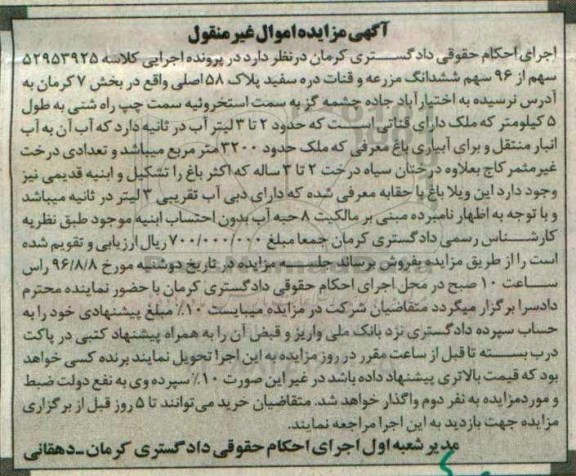 آگهی مزایده اموال غیر منقول
اجرای احکام حقوقی دادگستری کرمان درنظر دارد در پرونده اجرایی کلاسه ۵۲۹۵۳۹۲۵
سهم از ۹۶ سهم ششدانگ مزرعه و قنات دره سفید پلاک ۵۸ اصلی واقع در بخش ۷ کرمان به
آدرس نرسیده به اختیارآباد جاده چشمه گز به سمت استخروئیه سمت چپ راه شنی به طول
۵ کیلومتر که ملک دارای قناتی است که حدود ۲ تا ۳ لیتر آب در ثانیه دارد که آب آن به آب
انبار منتقل و برای آبیاری باغ معرفی که ملک حدود ۳۲۰۰ متر مربع میباشد و تعدادی درخت
غیرمثمر کاج بعلاوه درختان سیاه درخت ۲ تا ۳ ساله که اکثر باغ را تشکیل و ابنیه قدیمی نیز
وجود دارد این ویلا باغ با حقابه معرفی شده که دارای دبی آب تقریبی ۳ لیتر در ثانیه میباشد
و با توجه به اظهار نامبرده مبنی بر مالکیت ۸ حبه آب بدون احتساب ابنیه موجود طبق نظریه
کارشناس رسمی دادگستری کرمان جمعا مبلغ ۷۰۰/۰۰۰/۰۰۰ ریال ارزیابی و تقویم شده
است را از طریق مزایده بفروش برساند جلسه مزایده در تاریخ دوشنبه مورخ ۹۶/۸/۸ راس
ساعت ۱۰ صبح در محل اجرای احکام حقوقی دادگستری کرمان با حضور نماینده محترم
دادسرا برگزار میگردد متقاضیان شرکت در مزایده میبایست ۱۰٪ مبلغ پیشنهادی خود را به
حساب سپرده دادگستری نزد بانک ملی واریز و قبض آن را به همراه پیشنهاد کتبی در پاکت
درب بسته تا قبل از ساعت مقرر در روز مزایده به این اجرا تحویل نمایند برنده کسی خواهد
بود که قیمت بالاتری پیشنهاد داده باشد در غیر این صورت ۱۰٪ سپرده وی به نفع دولت ضبط
و مورد مزایده به نفر دوم واگذار خواهد شد. متقاضیان خرید می توانند تا ۵ روز قبل از برگزاری
مزایده جهت بازدید به این اجرا مراجعه نمایند.
مدیر شعبه اول اجرای احکام حقوقی دادگستری کرمان - دهقانی